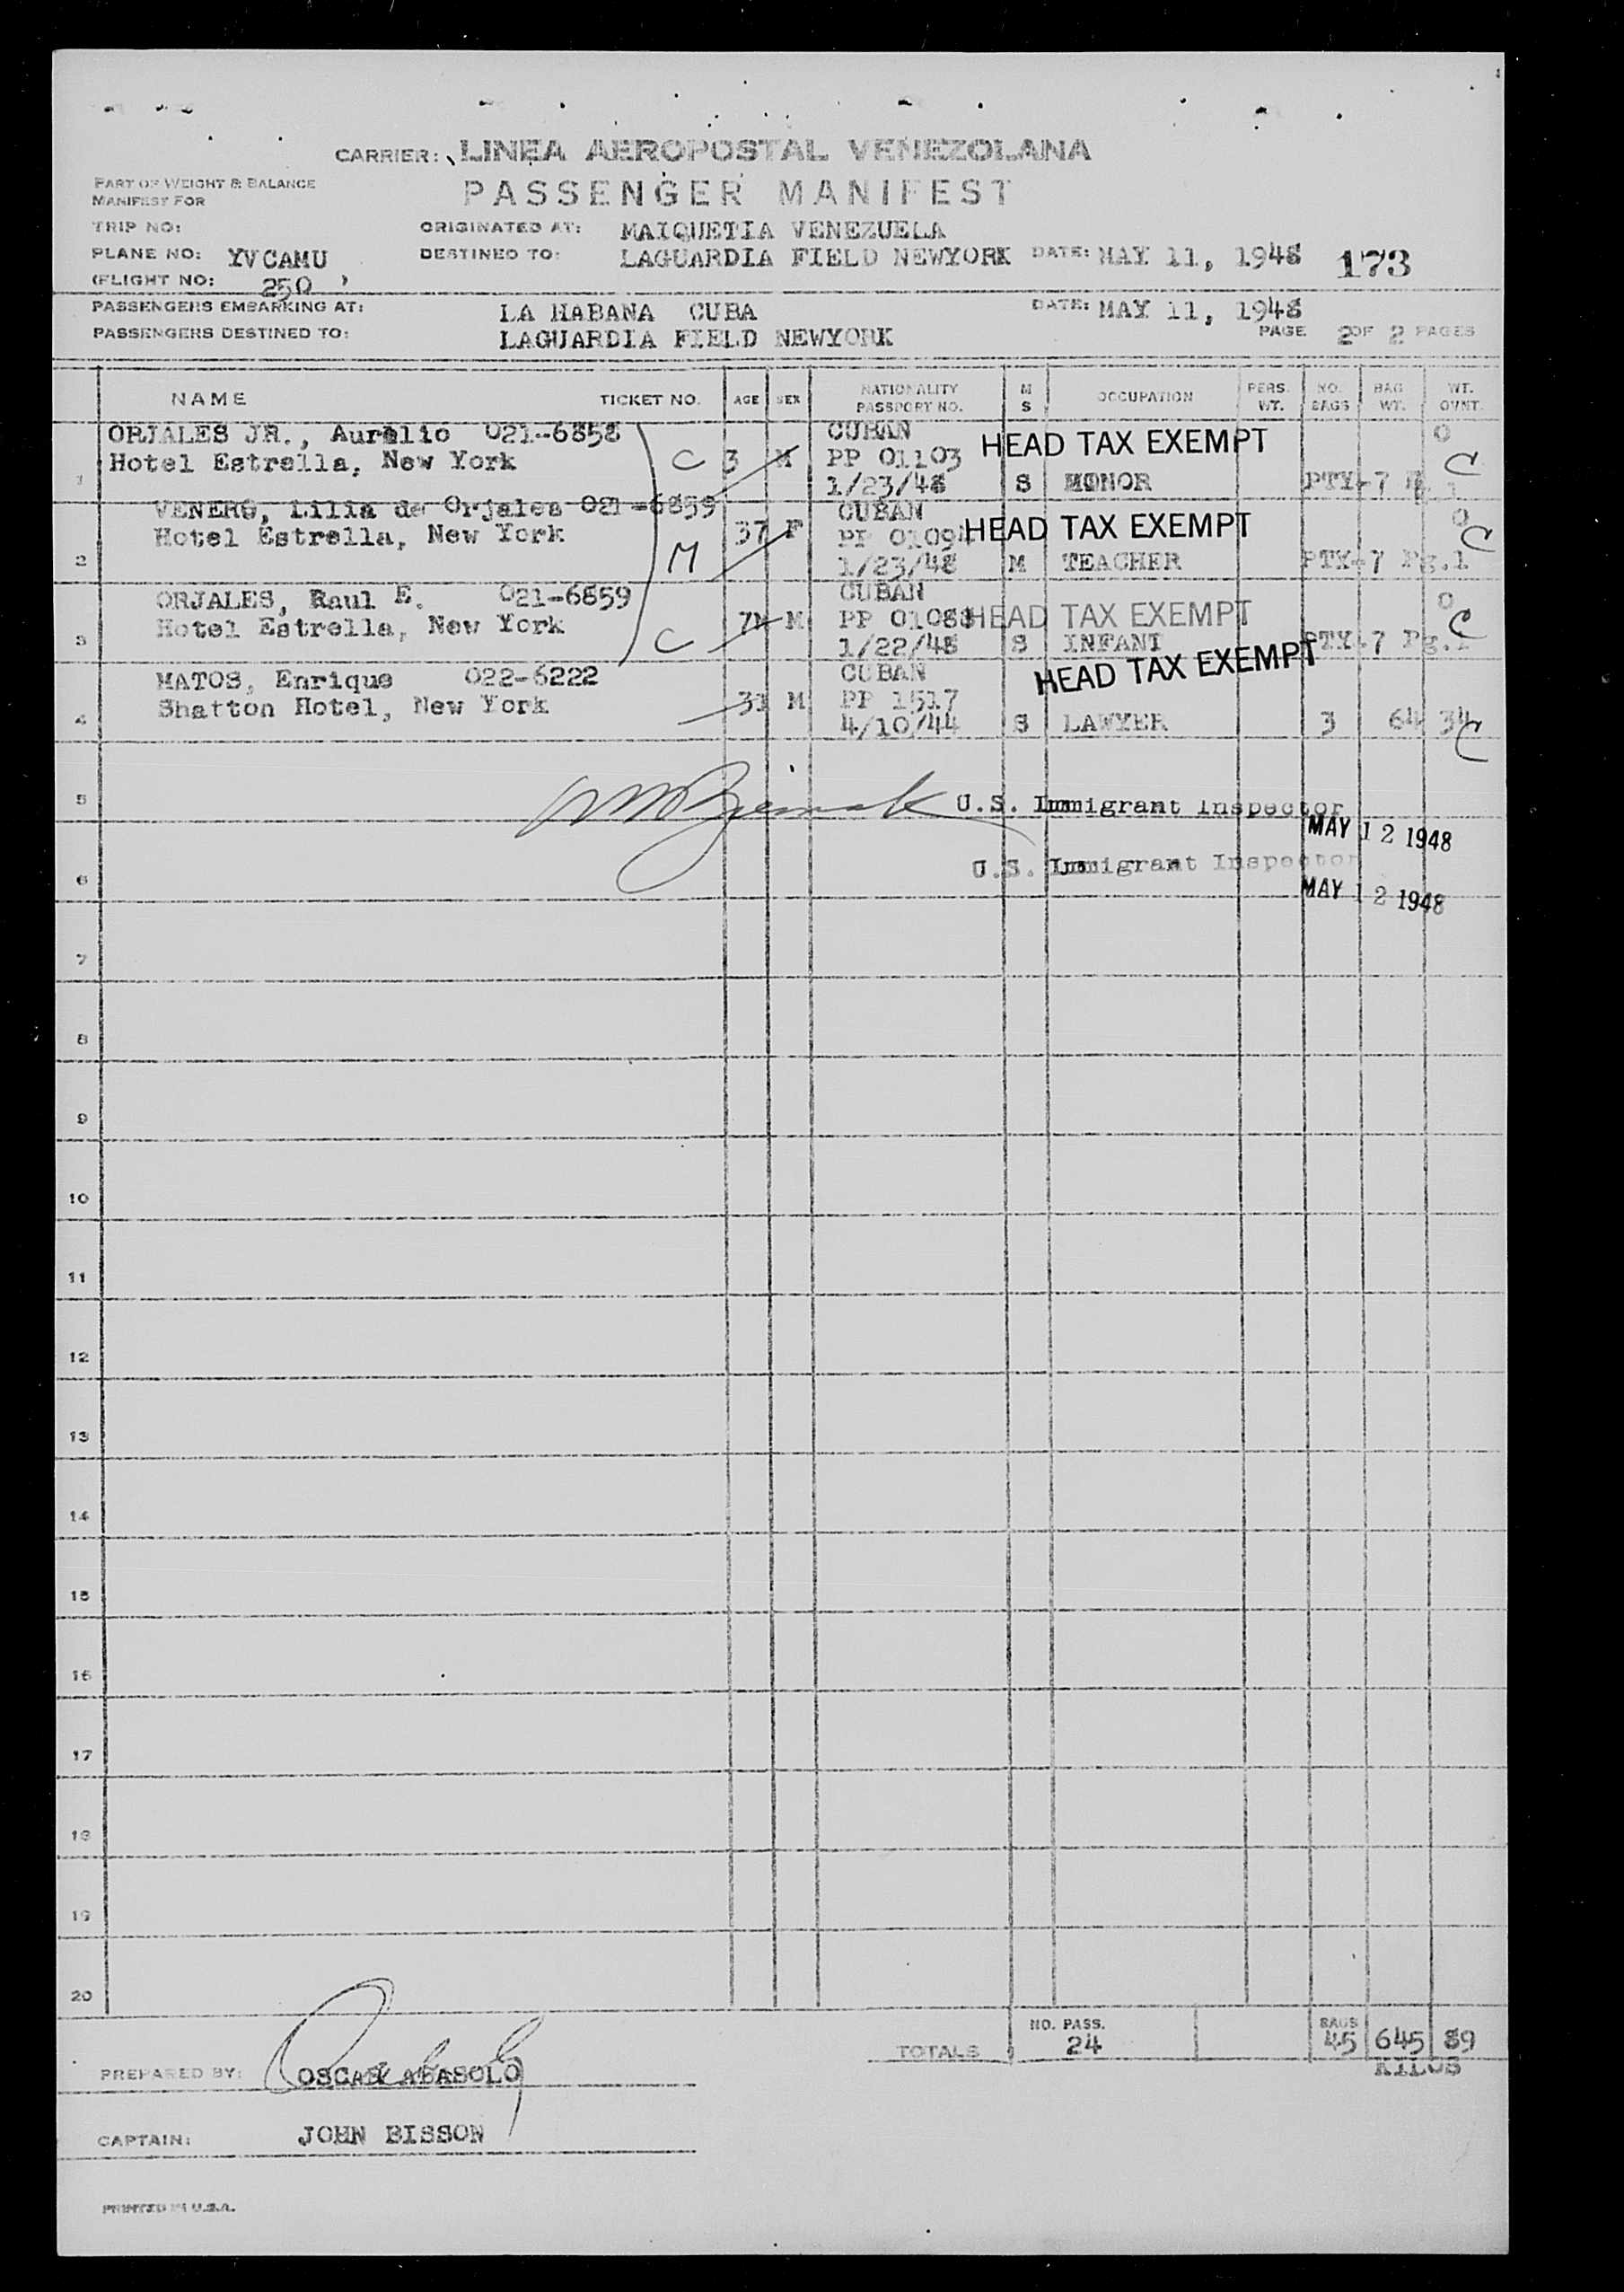 CARRIER: LINEA AEROPOSTAL VENEZOLANA
PART OF WEIGHT & BALANCE
MANIFEST FOR
PASSENGER MANIFEST
TRIP NO:
ORIGINATED AT: MAIQUETIA VENEZUELA
PLANE NO: YVCAMU
DESTINED TO: LAGUARDIA FIELD NEWYORK DATE: MAY 11, 1948 173
(FLIGHT NO: 250 )
PASSENGERS EMBARKING AT: LA HABANA CUBA DATE: MAY 11, 1948
PASSENGERS DESTINED TO: LAGUARDIA FIELD NEWYORK PAGE 2 OF 2 PAGES
NAME TICKET NO. AGE SEX NATIONALITY PASSPORT NO. M S OCCUPATION PERS. WT. NO. BAGS BAG WT. WT. OVNT.
ORJALES JR., Aurelio 021-6858 CUBAN HEAD TAX EXEMPT 0
Hotel Estrella, New York C 3 M PP 01103 C
1 1/23/48 S MONOR PTY-7 Pg.1
VENERO, Lilia de Orjales 021-6859 CUBAN 0
Hotel Estrella, New York 37 F PP 01094 HEAD TAX EXEMPT C
2 M 1/23/48 M TEACHER PTY-7 Pg.1
ORJALES, Raul E. 021-6859 CUBAN 0
Hotel Estrella, New York 7M M PP 01088 HEAD TAX EXEMPT C
3 C 1/22/48 S INFANT PTY-7 Pg.1
MATOS, Enrique 022-6222 CUBAN HEAD TAX EXEMPT
Shatton Hotel, New York 31 M PP 1517
4 4/10/44 S LAWYER 3 64 34 C
5 U.S. Immigrant Inspector
MAY 12 1948
6 U.S. Immigrant Inspector
MAY 12 1948
7
8
9
10
11
12
13
14
15
16
17
18
19
20
TOTALS NO. PASS. 24 BAGS 45 645 89
KILOS
PREPARED BY: OSCAR ABASOLO
CAPTAIN: JOHN BISSON
PRINTED IN U.S.A.